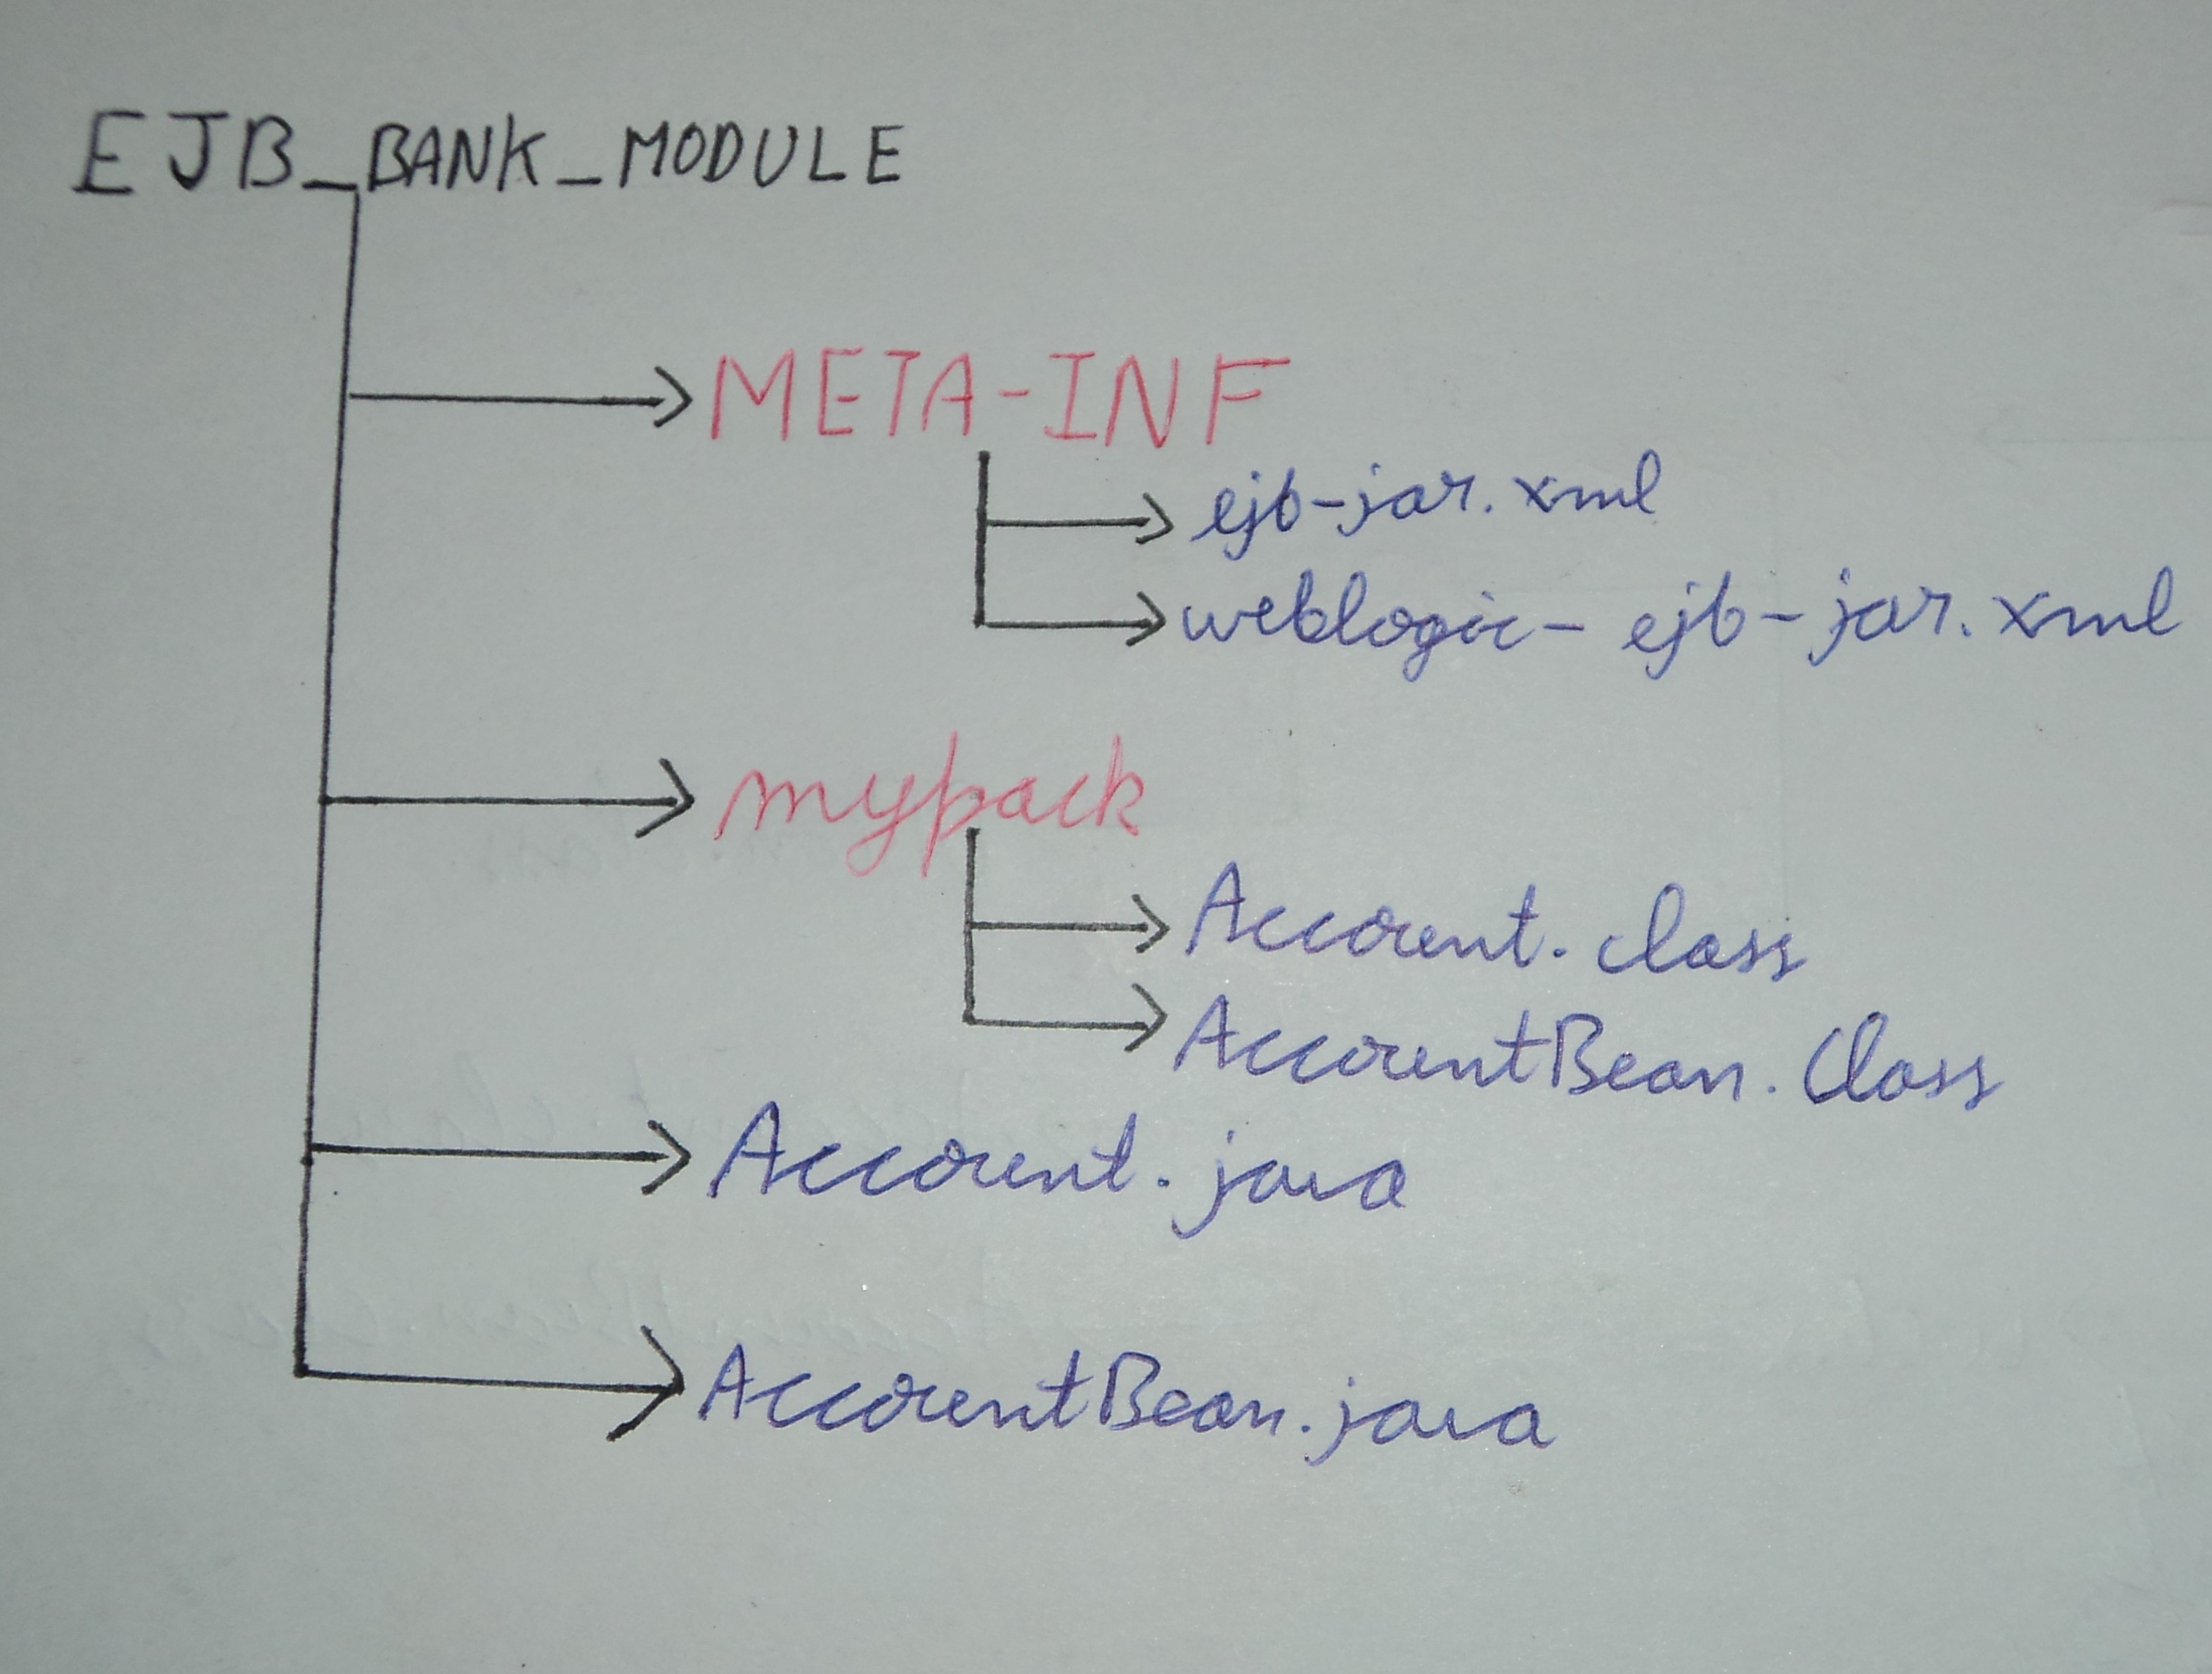 EJB_BANK_MODULE
META-INF
ejb-jar.xml
weblogic-ejb-jar.xml
mypack
Account.class
AccountBean.Class
Account.java
AccountBean.java